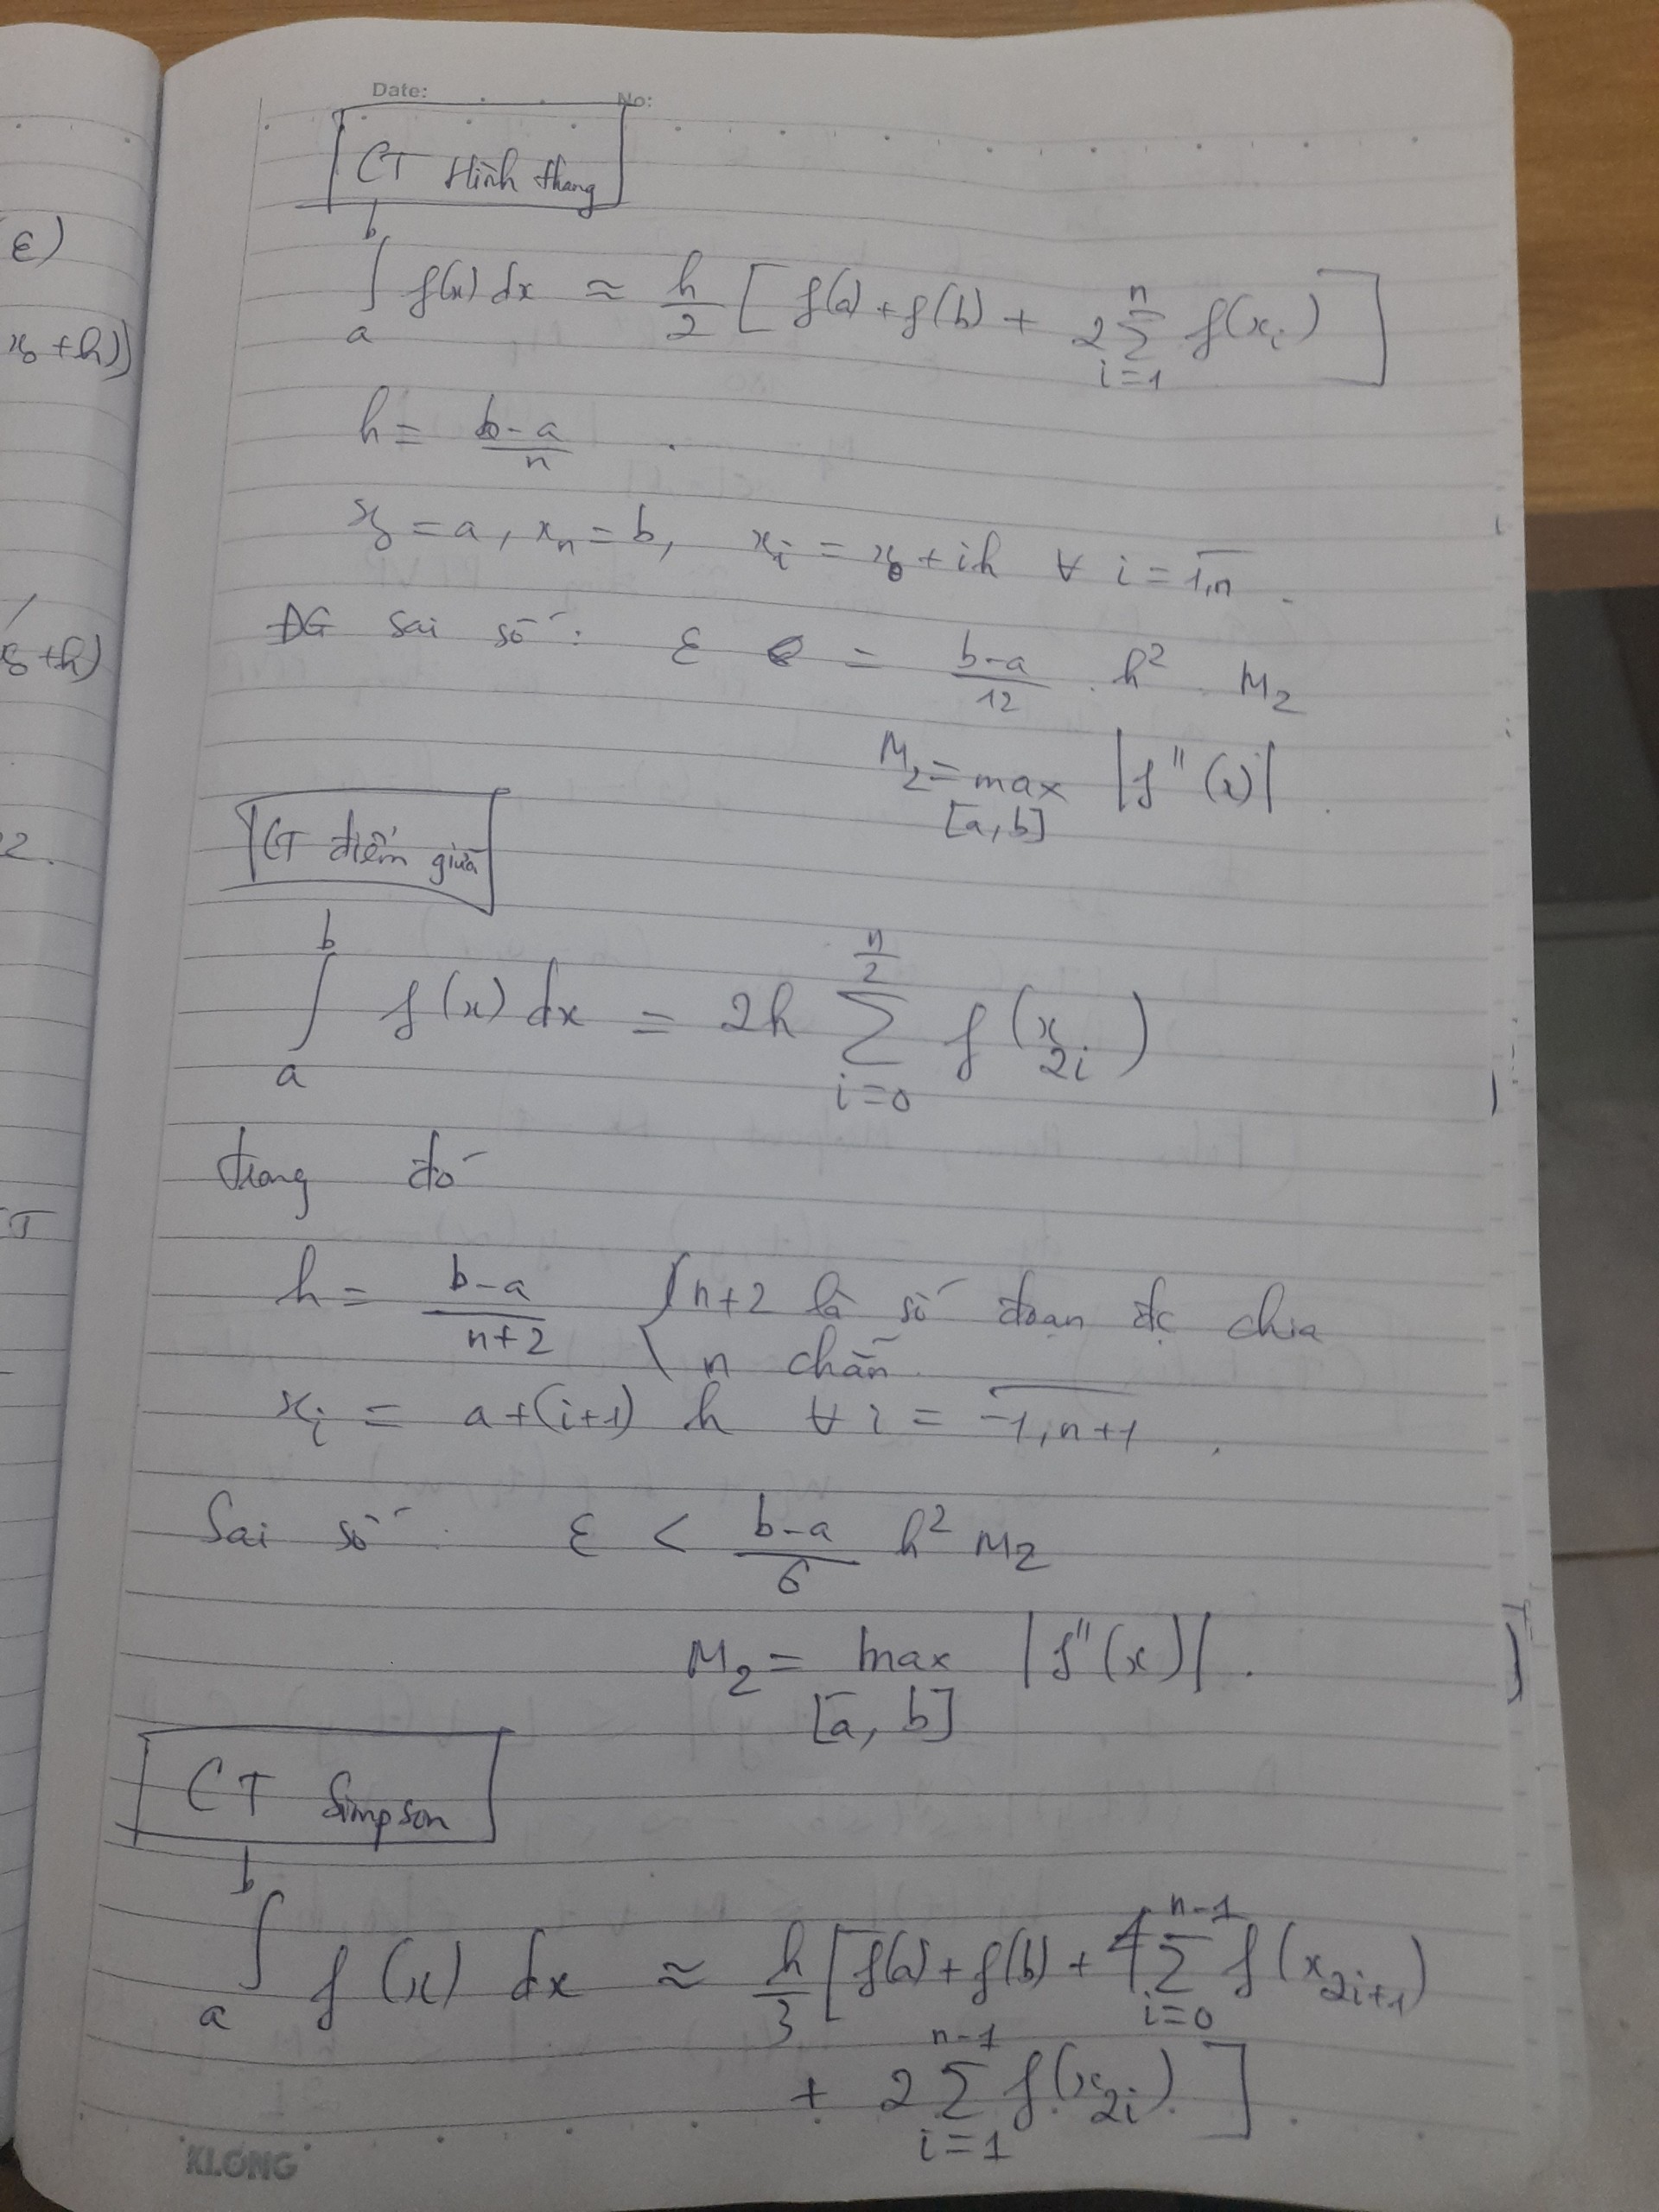 ε)
x₀+h))
x₀+h)
2.
Date: No:
CT Hình thang
∫_a^b f(x) dx ≈ h/2 [ f(a) + f(b) + 2 ∑_{i=1}^{n} f(x_i) ]
h = (b-a)/n
x₀ = a, x_n = b, x_i = x₀ + ih ∀ i = \overline{1,n}.
ĐG sai số: ε = (b-a)/12 . h² . M₂
M₂ = max_{[a,b]} |f''(x)|.
CT điểm giữa
∫_a^b f(x) dx = 2h ∑_{i=0}^{n/2} f(x_{2i})
trong đó
h = (b-a)/(n+2) { n+2 là số đoạn đc chia
n chẵn.
x_i = a+(i+1) h ∀ i = \overline{-1,n+1}.
Sai số: ε < (b-a)/6 h² M₂
M₂ = max_{[a,b]} |f''(x)|.
CT Simpson
∫_a^b f(x) dx ≈ h/3 [ f(a) + f(b) + 4 ∑_{i=0}^{n-1} f(x_{2i+1})
+ 2 ∑_{i=1}^{n-1} f(x_{2i}) ].
KLONG